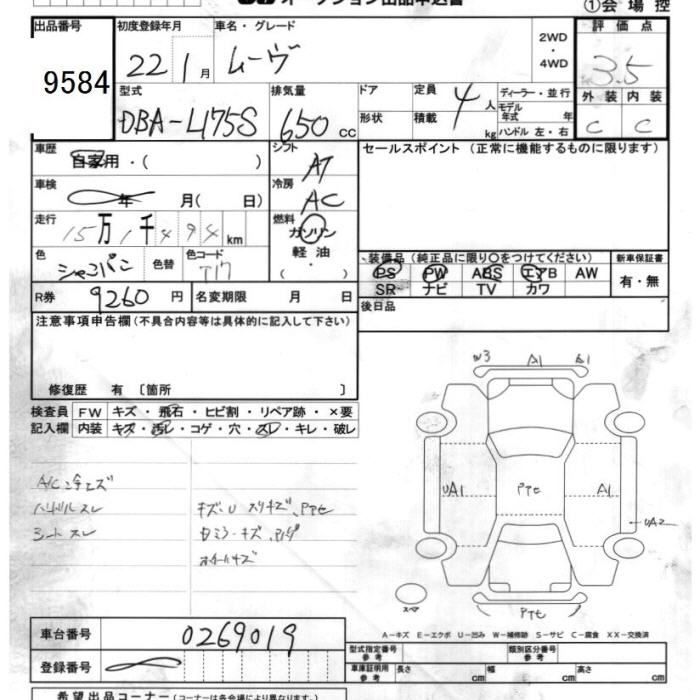 オークション出品申込書 ①会場控
出品番号 9584
初度登録年月 22 1月
車名・グレード ムーヴ
2WD・4WD
評価点 3.5
外装 内装
C C
型式 DBA-L175S
排気量 650 cc
ドア 形状
定員 4人
積載 kg
ディーラー・並行
モデル年式 年
ハンドル 左・右
車歴 自家用・( )
シフト AT
セールスポイント(正常に機能するものに限ります)
車検 年 月( 日)
冷房 AC
走行 15万1千494km
燃料 ガソリン 軽油・( )
色 シャンパン 色替 色コード T17
装備品(純正品に限り○をつけてください)
新車保証書 有・無
PS PW ABS エアB AW
SR ナビ TV カワ
R券 9260円
名変期限 月 日
後日品
注意事項申告欄(不具合内容等は具体的に記入して下さい)
修復歴 有〔箇所 〕
検査員 FW キズ・飛石・ヒビ割・リペア跡・×要
記入欄 内装 キズ・汚レ・コゲ・穴・スレ・キレ・破レ
W3 A1
ハンドルスレ
シートスレ
UA1 PTセ A1
UA2
スペア
PTセ
A-キズ E-エクボ U-凹み W-補修跡 S-サビ C-腐食 XX-交換済
車台番号 0269019
登録番号
型式指定番号 参考
類別区分番号 参考
車庫証明用 参考 長さ cm 幅 cm 高さ cm
希望出品コーナー(コーナーは各会場により異なります。)